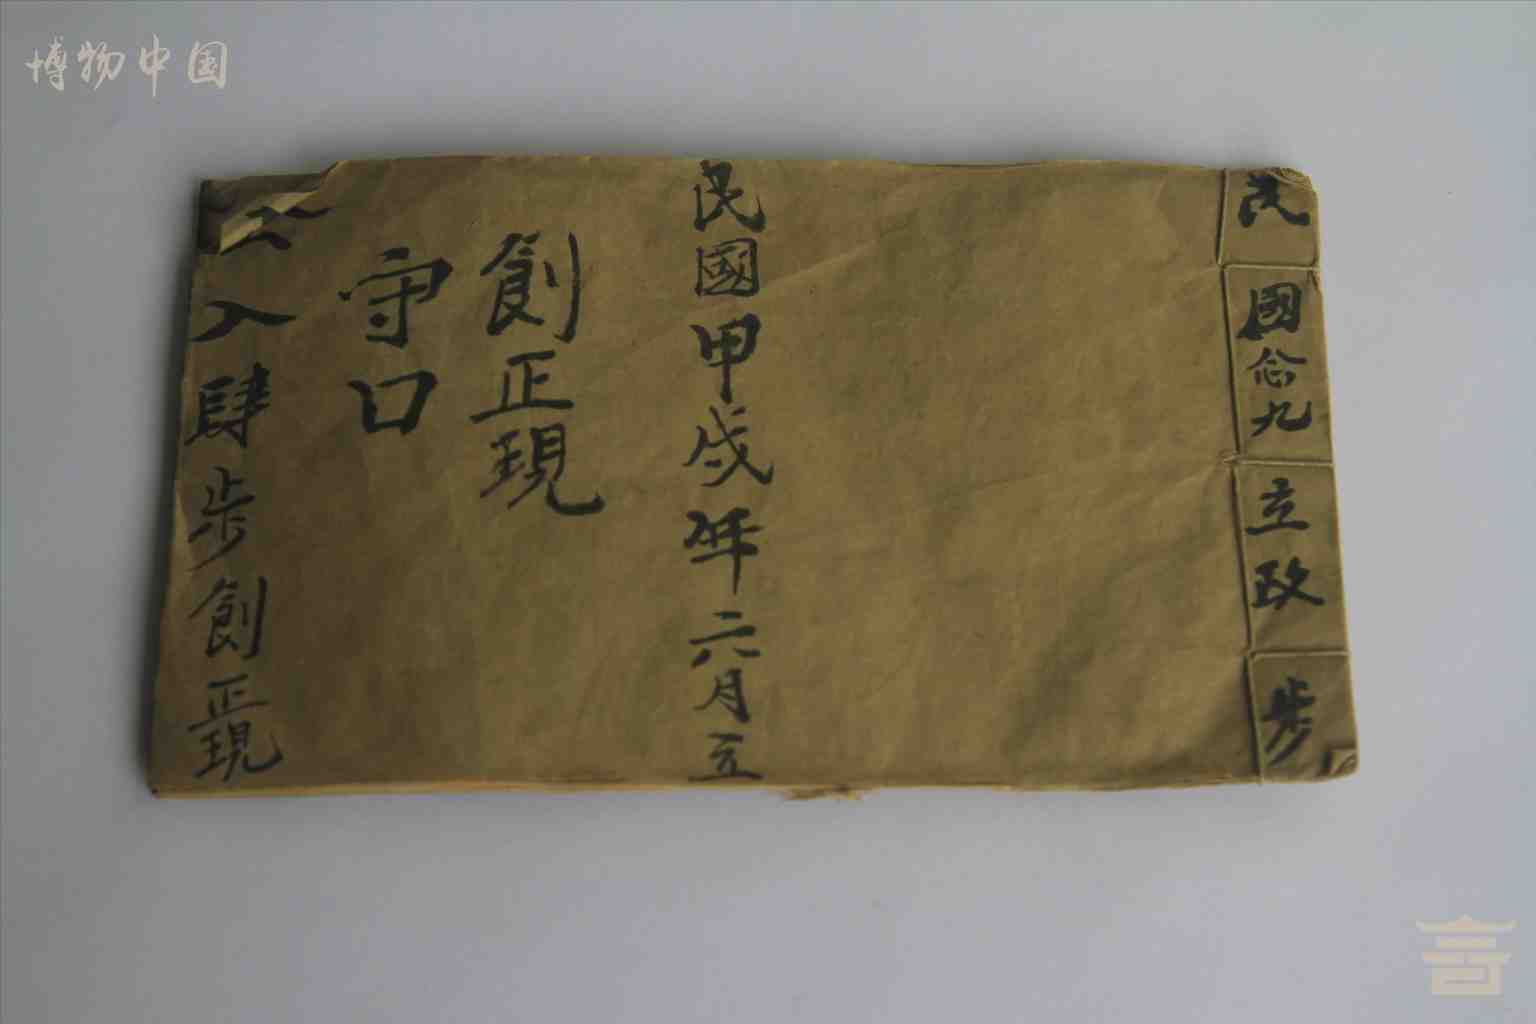 博物中国
民國念九立政步
民國甲戌年六月立
創正現
守口
入肆步創正現